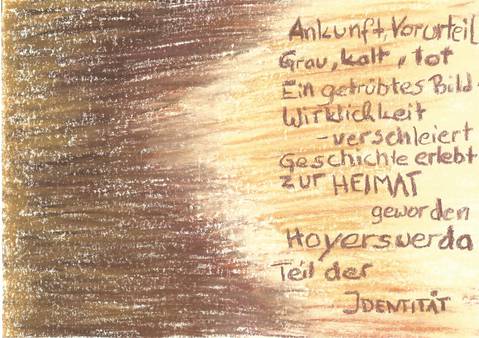 Ankunft, Vorurteil
Grau, kalt, tot
Ein getrübtes Bild -
Wirklichkeit
- verschleiert
Geschichte erlebt
zur HEIMAT
geworden
Hoyerswerda
Teil der
IDENTITÄT